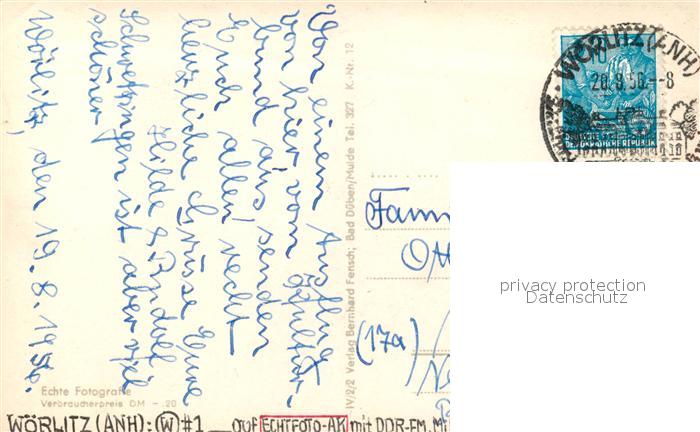 Von einem Ausflug
von hier vom Kultur-
bund aus senden
Euch allen recht
herzliche Grüsse Eure
Hilde & Rudolf
Schwetzingen ist aber viel
schöner
Wörlitz, den 19.8.1956.
Echte Fotografie
Verbraucherpreis DM -.20
IV/2/2 Verlag Bernhard Fensch, Bad Düben/Mulde Tel. 327 K.-Nr. 12
WÖRLITZ (ANH)
20.8.56.--8
10
DEUTSCHE
DEMOKRATISCHE REPUBLIK
Fam
Ott
(17a)
privacy protection
Datenschutz
WÖRLITZ (ANH): W #1 auf ECHTFOTO-AK mit DDR-FM. M